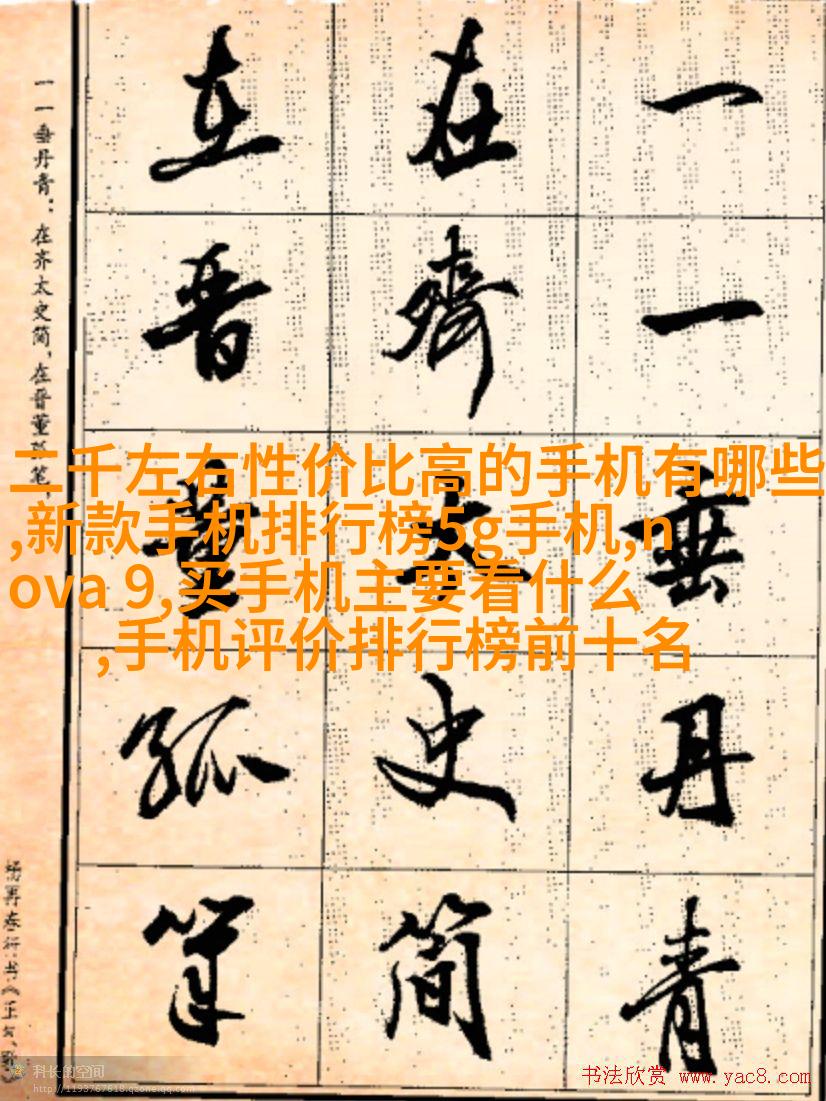 一一垂丹青
在齐太史简
在晋董狐笔
一一垂丹青：在齐太史简，在晋董狐笔，
二千左右性价比高的手机有哪些
,新款手机排行榜5g手机,n
ova 9,买手机主要看什么
,手机评价排行榜前十名
科长的空间
http://1193767618.qzone.qq.com
书法欣赏 www.yac8.com